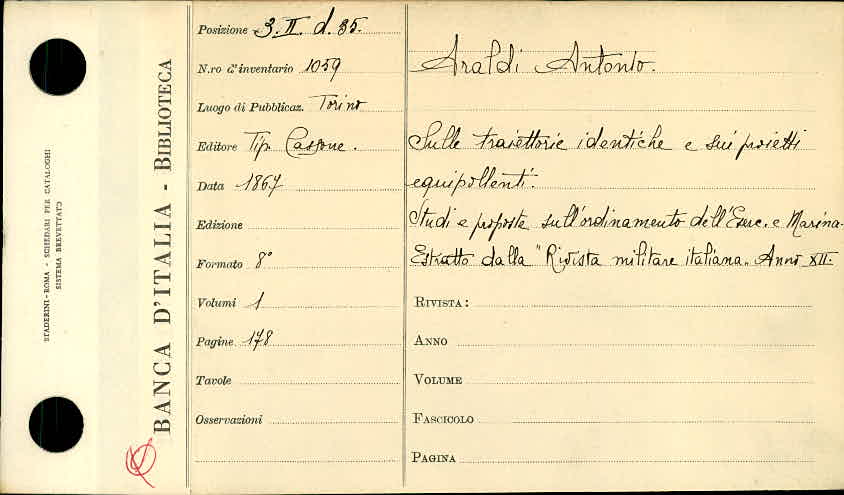 STADERINI-ROMA - SCHEDARI PER CATALOGHI
SISTEMA BREVETTATO
BANCA D'ITALIA - BIBLIOTECA
Posizione 3. II. d. 35.
N.ro d'inventario 1059
Luogo di Pubblicaz. Torino
Editore Tip. Cassone.
Data 1867
Edizione
Formato 8°
Volumi 1
Pagine 178
Tavole
Osservazioni
Araldi Antonio.
Sulle traiettorie identiche e sui proietti
equipollenti.
Studi e proposte sull'ordinamento dell'Eserc. e Marina.
Estratto dalla "Rivista militare italiana. Anno XII.
RIVISTA:
ANNO
VOLUME
FASCICOLO
PAGINA